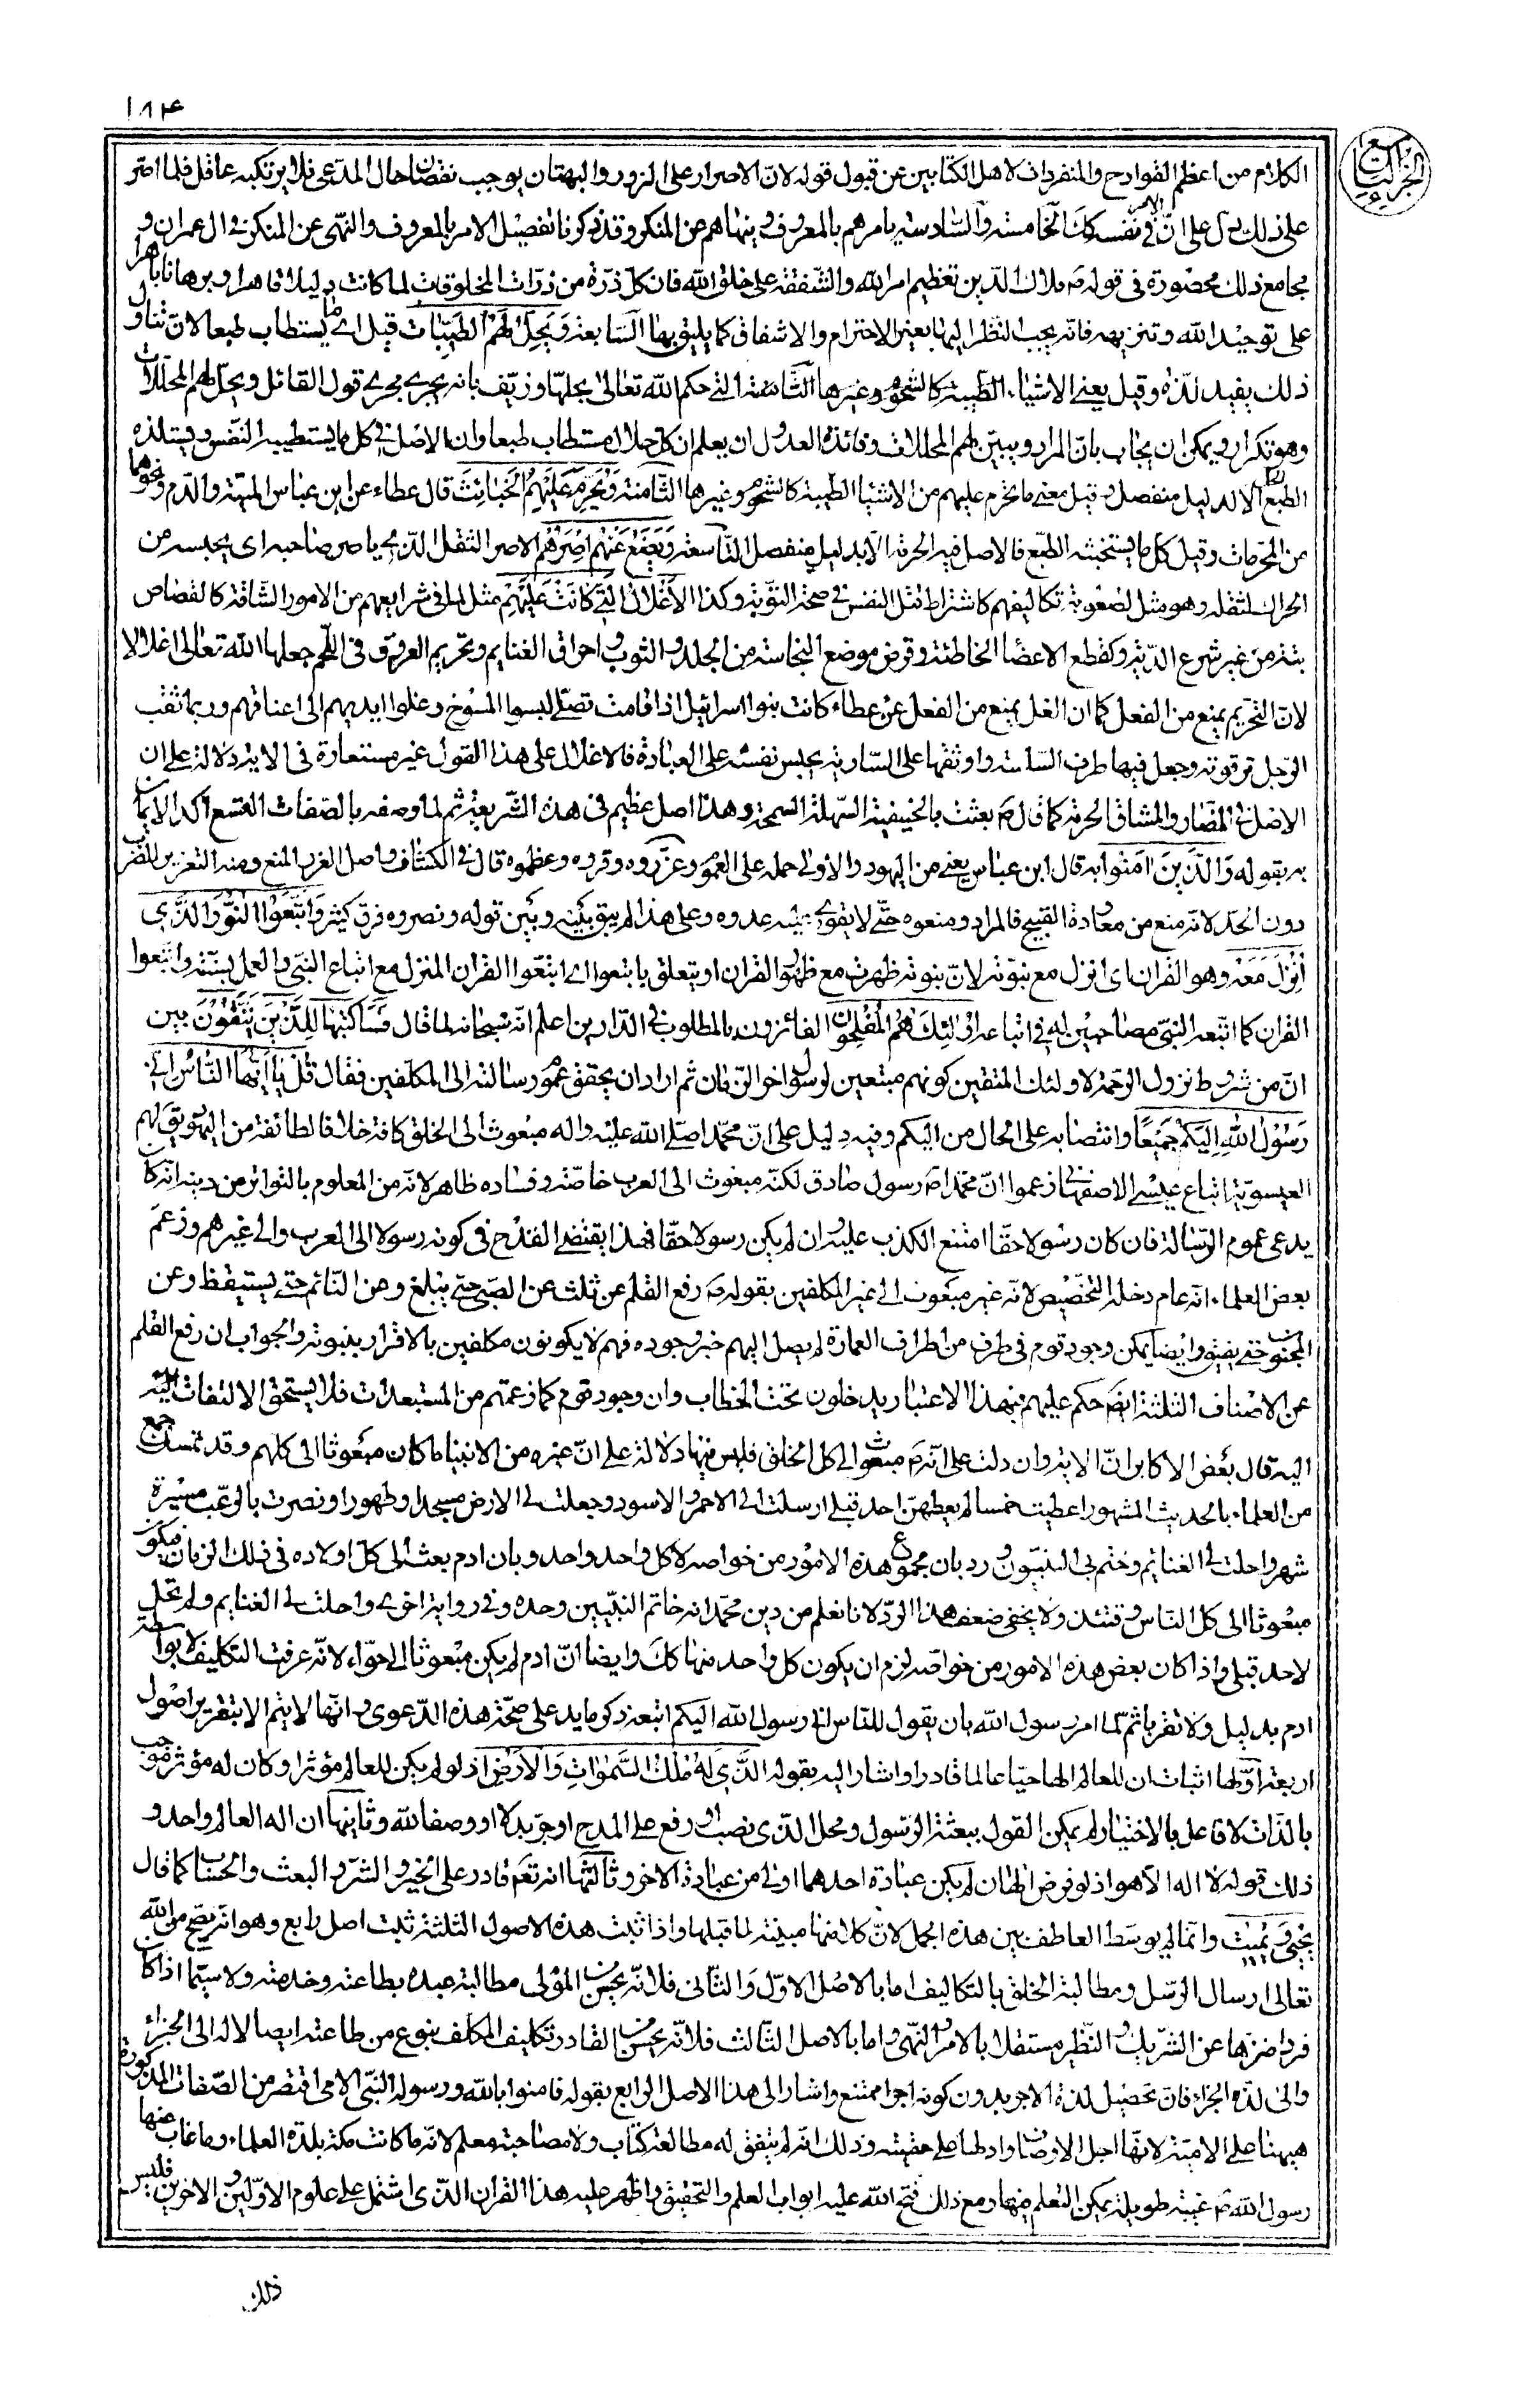 ١٨٤
الجزء التاسع
الكلام من اعظم القوادح والمنفرات لاهل الكتابين عن قبول قوله لان الاصرار على الزور والبهتان يوجب نقصان حال المدعى فلا يرتكبه عاقل فلما اصر
على ذلك دل على ان الامر فى نفسه كك الخامسة والسادسة يامرهم بالمعروف وينهاهم عن المنكر وقد ذكرنا تفصيل الامر بالمعروف والنهى عن المنكر فى ال عمران و
مجامع ذلك محصورة فى قوله ص ملاك الدين تعظيم امر الله والشفقة على خلق الله فان كل ذرة من ذرات المخلوقات لما كانت دليلا قاهرا وبرهانا باهرا
على توحيد الله وتنزيهه فانه يجب النظر اليها بعين الاحترام والاشفاق كما يليق بها السابعة ويحل لهم الطيبات قيل اى ما يستطاب طبعا لان تناول
ذلك يفيد لذة وقيل يعنى الاشياء الطيبة كالشحوم وغيرها الثامنة التى حكم الله تعالى بحلها وزيف بانه يجرى مجرى قول القائل ويحل لهم المحللات
وهو تكرار ويمكن ان يجاب بان المراد ويبين لهم المحللات وفائدة العدول ان يعلم ان كل حلال مستطاب طبعا وان الاصل فى كل ما يستطيبه النفس ويستلذه
الطبع الحل الا لدليل منفصل وقيل معنى ما يحرم عليهم من الاشيا الطيبة كالشحوم وغيرها الثامنة ويحرم عليهم الخبائث قال عطاء عن ابن عباس الميتة والدم ونحوهما
من المحرمات وقيل كل ما يستخبثه الطبع فالاصل فيه الحرمة الا بدليل منفصل التاسعة ويضع عنهم اصرهم الاصر الثقل الذى ياصر صاحبه اى يحبسه من
الحراك لثقله وهو مثل لصعوبة تكاليفهم كاشتراط قتل النفس فى صحة التوبة وكذا الاغلال التى كانت عليهم مثل لما فى شرايعهم من الامور الشاقة كالقصاص
بتة من غير شرع الدية وكقطع الاعضا الخاطئة وقرض موضع النجاسة من الجلد والثوب واحراق الغنايم وتحريم العروق فى اللحم جعلها الله تعالى اغلالا
لان التحريم يمنع من الفعل كما ان الغل يمنع من الفعل عن عطاء كانت بنوا اسرائيل اذا قامت تصلى لبسوا المسوخ وغلوا ايديهم الى اعناقهم وربما ثقب
الرجل ترقوته وجعل فيها طرف السلسلة واوثقها على السارية يحبس نفسه على العبادة فالاغلال على هذا القول غير مستعارة فى الاية دلالة على ان
الاصل فى المضار والمشاق الحرمة كما قال ص بعثت بالحنيفية السهلة السمحة وهذا اصل عظيم فى هذه الشريعة ثم لما وصفه بالصفات التسع اكد الايمان
به بقوله والذين امنوا به قال ابن عباس يعنى من اليهود والاولى حمله على العموم وعزروه وقروه وعظموه قال فى الكشاف واصل الغرر المنع ومنه التعزير للضرب
دون الحد لانه منع من معاودة القبيح فالمراد ومنعوه حتى لا يقوى عليه عدوه وعلى هذا لم يبق بينه وبين قوله ونصروه فرق كثير واتبعوا النور الذى
انزل معه وهو القران اى انزل مع نبوته لان نبوته ظهرت مع ظهور القران او يتعلق باتبعوا اى اتبعوا القران المنزل مع اتباع النبى والعمل بسنته واتبعوا
القران كما اتبعه النبى مصاحبين له فى اتباعه اولئك هم المفلحون الفائزون بالمطلوب فى الدارين اعلم انه سبحانه لما قال فساكتبها للذين يتقون بين
ان من شروط نزول الرحمة لاولئك المتقين كونهم متبعين لرسول اخر الزمان ثم اراد ان يحقق عموم رسالته الى المكلفين فقال قل يا ايها الناس انى
رسول الله اليكم جميعا وانتصابه على الحال من اليكم وفيه دليل على ان محمدا صلى الله عليه واله مبعوث الى الخلق كافة خلافا لطائفة من اليهود يق لهم
العيسوية اتباع عيسى الاصفهانى زعموا ان محمدا ص رسول صادق لكنه مبعوث الى العرب خاصة وفساده ظاهر لانه من المعلوم بالتواتر من دينه انه كان
يدعى عموم الرسالة فان كان رسولا حقا امتنع الكذب عليه وان لم يكن رسولا حقا فهذا يقتضى القدح فى كونه رسولا الى العرب والى غيرهم وزعم
بعض العلماء انه عام دخله التخصيص لانه غير مبعوث الى غير المكلفين بقوله ص رفع القلم عن ثلث عن الصبى حتى يبلغ وعن النائم حتى يستيقظ وعن
المجنون حتى يفيق وايضا يمكن وجود قوم فى طرف من اطراف العمارة لم يصل اليهم خبر وجوده فهم لا يكونون مكلفين بالاقرار بنبوته والجواب ان رفع القلم
عن الاصناف الثلثة ايض حكم عليهم فبهذا الاعتبار يدخلون تحت الخطاب وان وجود قوم كما زعمتم من المستبعدات فلا يستحق الالتفات اليه
اليه قال بعض الاكابر ان الاية وان دلت على انه ص مبعوث الى كل الخلق فليس فيها دلالة على ان غيره من الانبيا ما كان مبعوثا الى كلهم وقد تمسك جمع
من العلماء بالحديث المشهور اعطيت خمسا لم يعطهن احد قبلى ارسلت الى الاحمر والاسود وجعلت لى الارض مسجدا وطهورا ونصرت بالرعب مسيرة
شهر واحلت لى الغنايم وختم بى النبيون ورد بان مجموع هذه الامور من خواصه لا كل واحد واحد وبان ادم بعث الى كل اولاده فى ذلك الزمان فيكون
مبعوثا الى كل الناس وقتئذ ولا يخفى ضعف هذا الرد لانا نعلم من دين محمد انه خاتم النبيين وحده وفى رواية اخرى واحلت لى الغنايم ولم تحل
لاحد قبلى واذا كان بعض هذه الامور من خواصه لزم ان يكون كل واحد منها كك وايضا ان ادم لم يكن مبعوثا الى حواء لانه عرفت التكليف لا بواسطة
ادم بدليل ولا تقربا ثم لما امر رسول الله بان يقول للناس انى رسول الله اليكم اتبعه ذكر ما يدل على صحة هذه الدعوى وانها لا يتم الا بتقرير اصول
اربعة اولها اثبات ان للعالم الها حيا عالما قادرا واشار اليه بقوله الذى له ملك السموات والارض اذ لو لم يكن للعالم مؤثرا وكان له مؤثر موجب
بالذات لا فاعل بالاختيار لم يمكن القول ببعثة الرسول ومحل الذى نصب او رفع على المدح او جر بدلا او وصفا لله وثانيها ان اله العالم واحد و
ذلك قوله لا اله الا هو اذ لو فرض الهان لم يكن عبادة احدهما اولى من عبادة الاخر وثالثها انه تعم قادر على الخير والشر والبعث والحساب كما قال
يحيى ويميت وانما لم يوسط العاطف بين هذه الجمل لان كلا منها مبينة لما قبلها واذا ثبت هذه الاصول الثلثة ثبت اصل رابع وهو انه يصح من الله
تعالى ارسال الرسل ومطالبة الخلق بالتكاليف اما بالاصل الاول والثانى فلانه يحسن من المولى مطالبة عبده بطاعته وخدمته ولا سيما اذا كان
فردا منزها عن الشريك والنظير مستقلا بالامر والنهى واما بالاصل الثالث فلانه يحسن من القادر تكليف المكلف بنوع من طاعته ايصالا له الى الجزاء
والى لذة الجزاء فان تحصيل لذة الاجر بدون كونه اجرا ممتنع واشار الى هذا الاصل الرابع بقوله فامنوا بالله ورسوله النبى الامى اقتصر من الصفات المذكورة
هيهنا على الامية لانها اجل الاوصاف وادلها على حقيته وذلك انه لم يتفق له مطالعة كتاب ولا مصاحبة معلم لانه ما كانت مكة بلدة العلماء وما غاب عنها
رسول الله ص غيبة طويلة يمكن التعلم فيها ومع ذلك فتح الله عليه ابواب العلم والتحقيق واظهر عليه هذا القران الذى اشتمل على علوم الاولين والاخرين فليس
ذلك